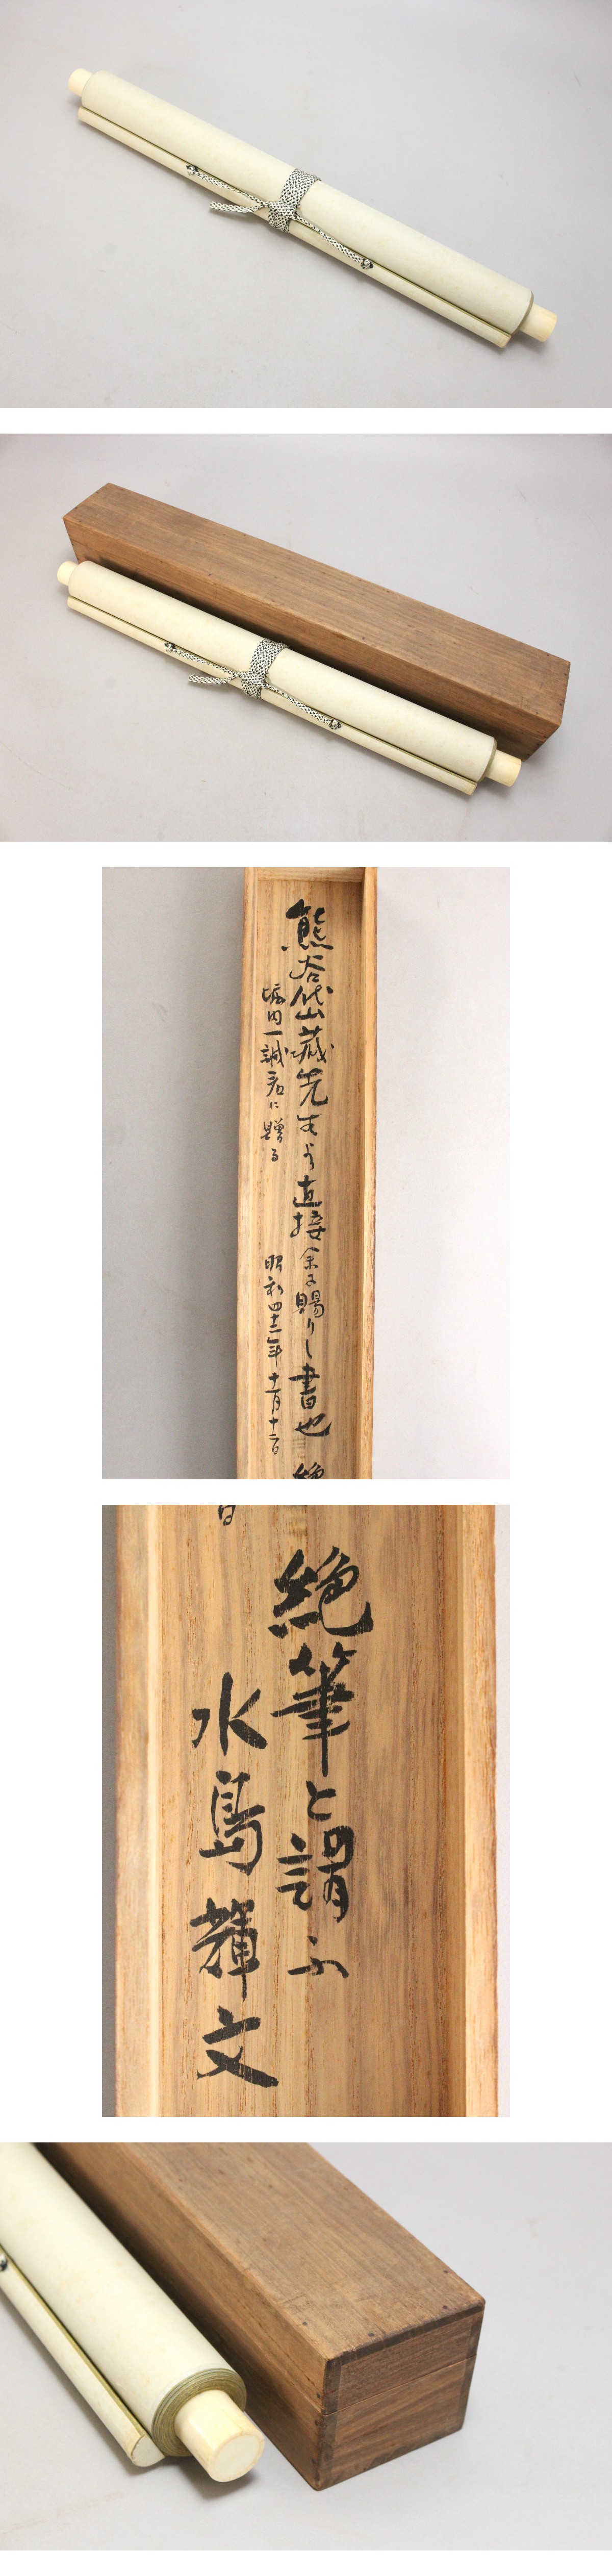 熊谷岱蔵先生より直接余に賜りし書也
堀内一誠君に贈る 昭和四十一年十一月十二日
絶筆と謂ふ
水島輝文